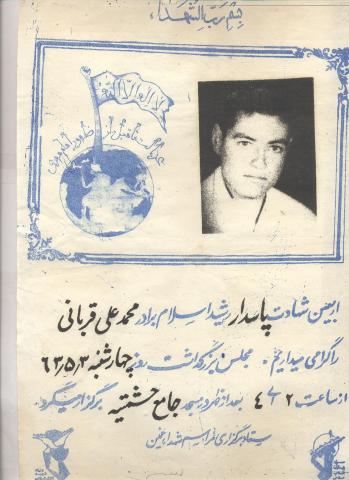 بسم رب الشهداء
لا اله الا الله
اربعین شهادت پاسدار رشید اسلام برادر محمد علی قربانی
را گرامی میداریم. مجلس بزرگداشت روز چهارشنبه ۶۳/۵/۳
از ساعت ۲ تا ۴ بعد از ظهر در مسجد جامع حشمتیه برگزار میگردد.
ستاد برگزاری مراسم شهدا خمین